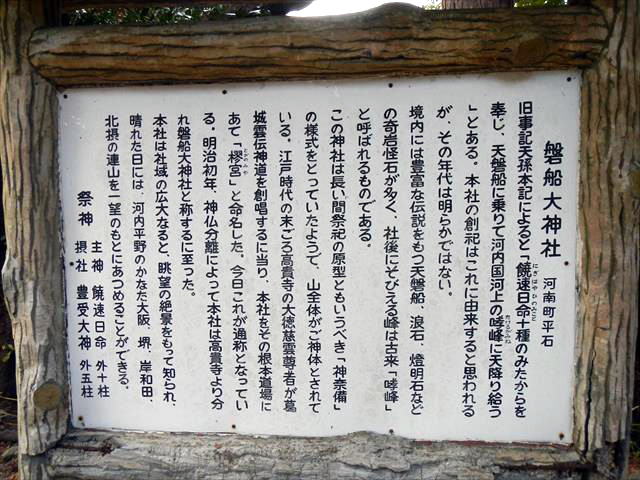 磐船大神社 河南町平石
旧事記天孫本記によると「饒速日命十種のみたからを
奉じ、天磐船に乗りて河内国河上の哮峰に天降り給う
」とある。本社の創祀はこれに由来すると思われる
が、その年代は明らかではない。
境内には豊富な伝説をもつ天磐船、浪石、燈明石など
の奇岩怪石が多く、社後にそびえる峰は古来「哮峰」
と呼ばれるものである。
この神社は長い間祭祀の原型ともいうべき「神奈備」
の様式をとっていたようで、山全体がご神体とされて
いる。江戸時代の末ごろ高貴寺の大徳慈雲尊者が葛
城雲伝神道を創唱するに当り、本社をその根本道場に
あて「樛宮」と命名した。今日これが通称となってい
る。明治初年、神仏分離によって本社は高貴寺より分
れ磐船大神社と称するに至った。
本社は社域の広大なると、眺望の絶景をもって知られ、
晴れた日には、河内平野のかなた大阪、堺、岸和田、
北摂の連山を一望のもとにあつめることができる。
祭神 主神 饒速日命 外十柱
摂社 豊受大神 外五柱